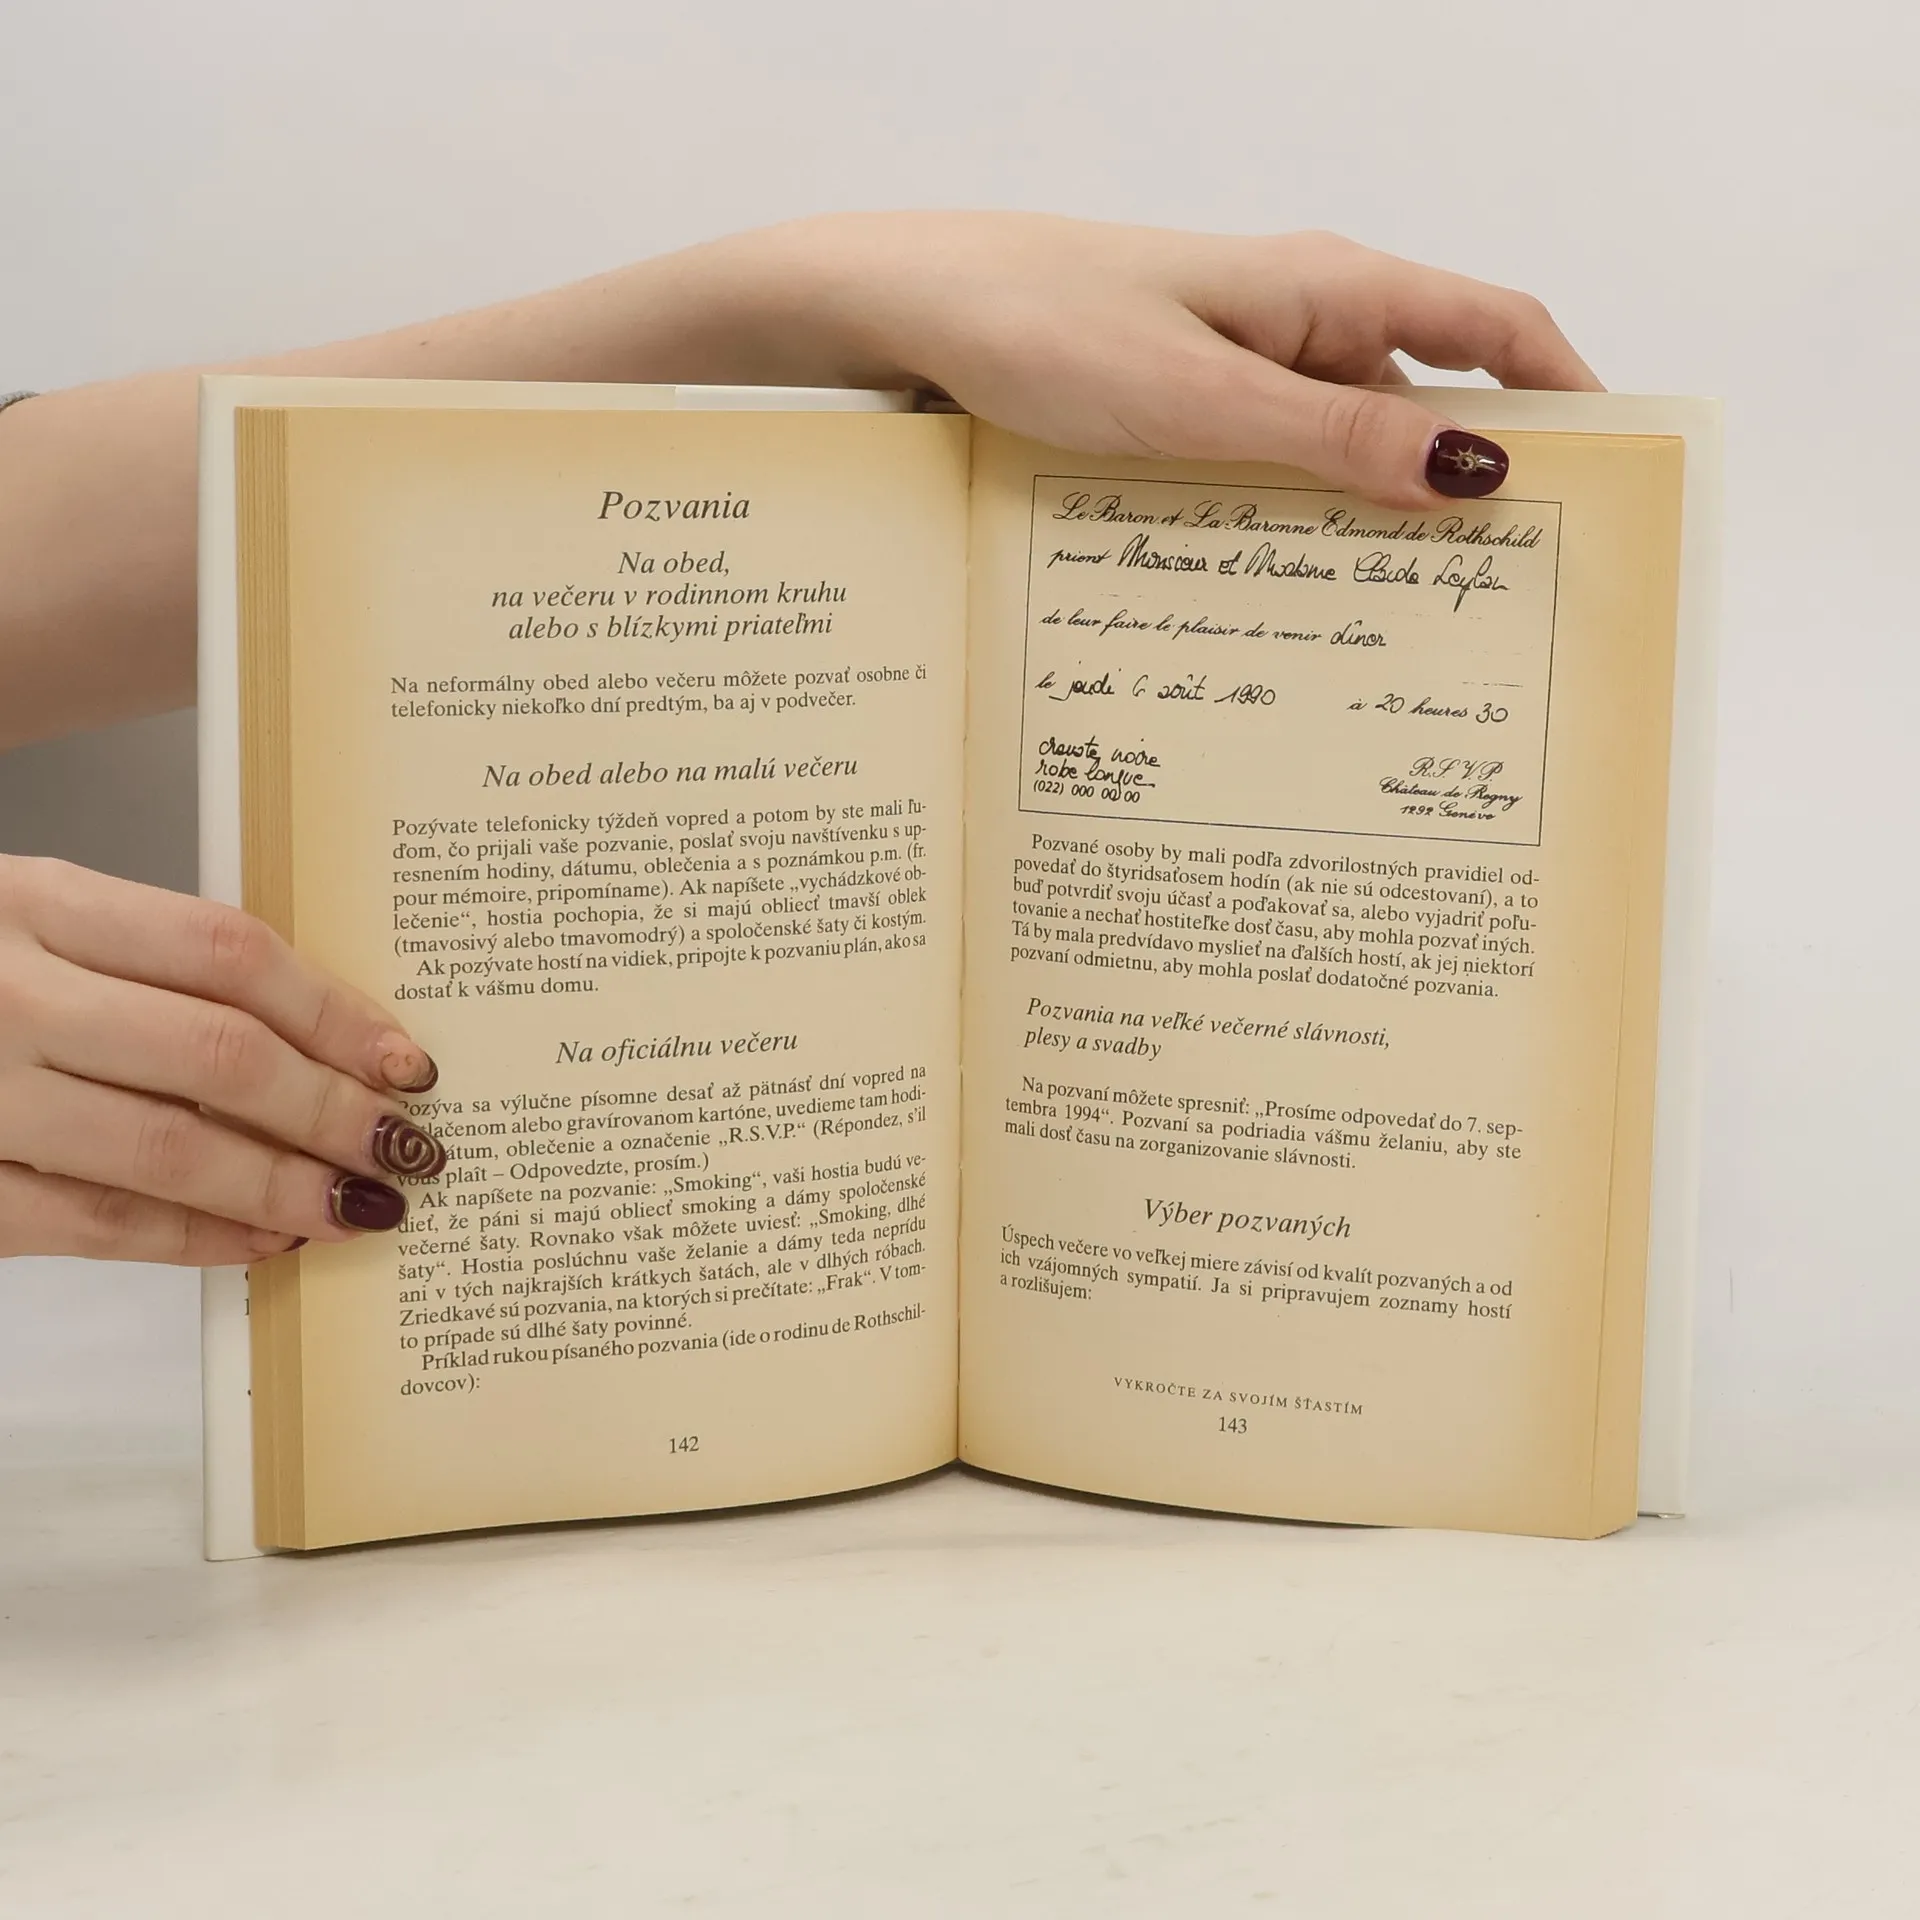 Pozvania
Na obed,
na večeru v rodinnom kruhu
alebo s blízkymi priateľmi
Na neformálny obed alebo večeru môžete pozvať osobne či
telefonicky niekoľko dní predtým, ba aj v podvečer.
Na obed alebo na malú večeru
Pozývate telefonicky týždeň vopred a potom by ste mali ľu-
ďom, čo prijali vaše pozvanie, poslať svoju navštívenku s up-
resnením hodiny, dátumu, oblečenia a s poznámkou p.m. (fr.
pour mémoire, pripomíname). Ak napíšete „vychádzkové ob-
lečenie“, hostia pochopia, že si majú obliecť tmavší oblek
(tmavosivý alebo tmavomodrý) a spoločenské šaty či kostým.
Ak pozývate hostí na vidiek, pripojte k pozvaniu plán, ako sa
dostať k vášmu domu.
Na oficiálnu večeru
Pozýva sa výlučne písomne desať až pätnásť dní vopred na
tlačenom alebo gravírovanom kartóne, uvedieme tam hodi-
átum, oblečenie a označenie „R.S.V.P.“ (Répondez, s'il
vous plaît – Odpovedzte, prosím.)
Ak napíšete na pozvanie: „Smoking“, vaši hostia budú ve-
dieť, že páni si majú obliecť smoking a dámy spoločenské
večerné šaty. Rovnako však môžete uviesť: „Smoking, dlhé
šaty“. Hostia poslúchnu vaše želanie a dámy teda neprídu
ani v tých najkrajších krátkych šatách, ale v dlhých róbach.
Zriedkavé sú pozvania, na ktorých si prečítate: „Frak“. V tom-
to prípade sú dlhé šaty povinné.
Príklad rukou písaného pozvania (ide o rodinu de Rothschil-
dovcov):
142
Le Baron et La Baronne Edmond de Rothschild
prient Monsieur et Madame
de leur faire le plaisir de venir dîner
le jeudi 6 août 1990 à 20 heures 30
cravate noire
robe longue
(022) 000 00 00
R.S.V.P.
Château de Pregny
1292 Genève
Pozvané osoby by mali podľa zdvorilostných pravidiel od-
povedať do štyridsaťosem hodín (ak nie sú odcestovaní), a to
buď potvrdiť svoju účasť a poďakovať sa, alebo vyjadriť poľu-
tovanie a nechať hostiteľke dosť času, aby mohla pozvať iných.
Tá by mala predvídavo myslieť na ďalších hostí, ak jej niektorí
pozvaní odmietnu, aby mohla poslať dodatočné pozvania.
Pozvania na veľké večerné slávnosti,
plesy a svadby
Na pozvaní môžete spresniť: „Prosíme odpovedať do 7. sep-
tembra 1994“. Pozvaní sa podriadia vášmu želaniu, aby ste
mali dosť času na zorganizovanie slávnosti.
Výber pozvaných
Úspech večere vo veľkej miere závisí od kvalít pozvaných a od
ich vzájomných sympatií. Ja si pripravujem zoznamy hostí
a rozlišujem:
VYKROČTE ZA SVOJÍM ŠŤASTÍM
143